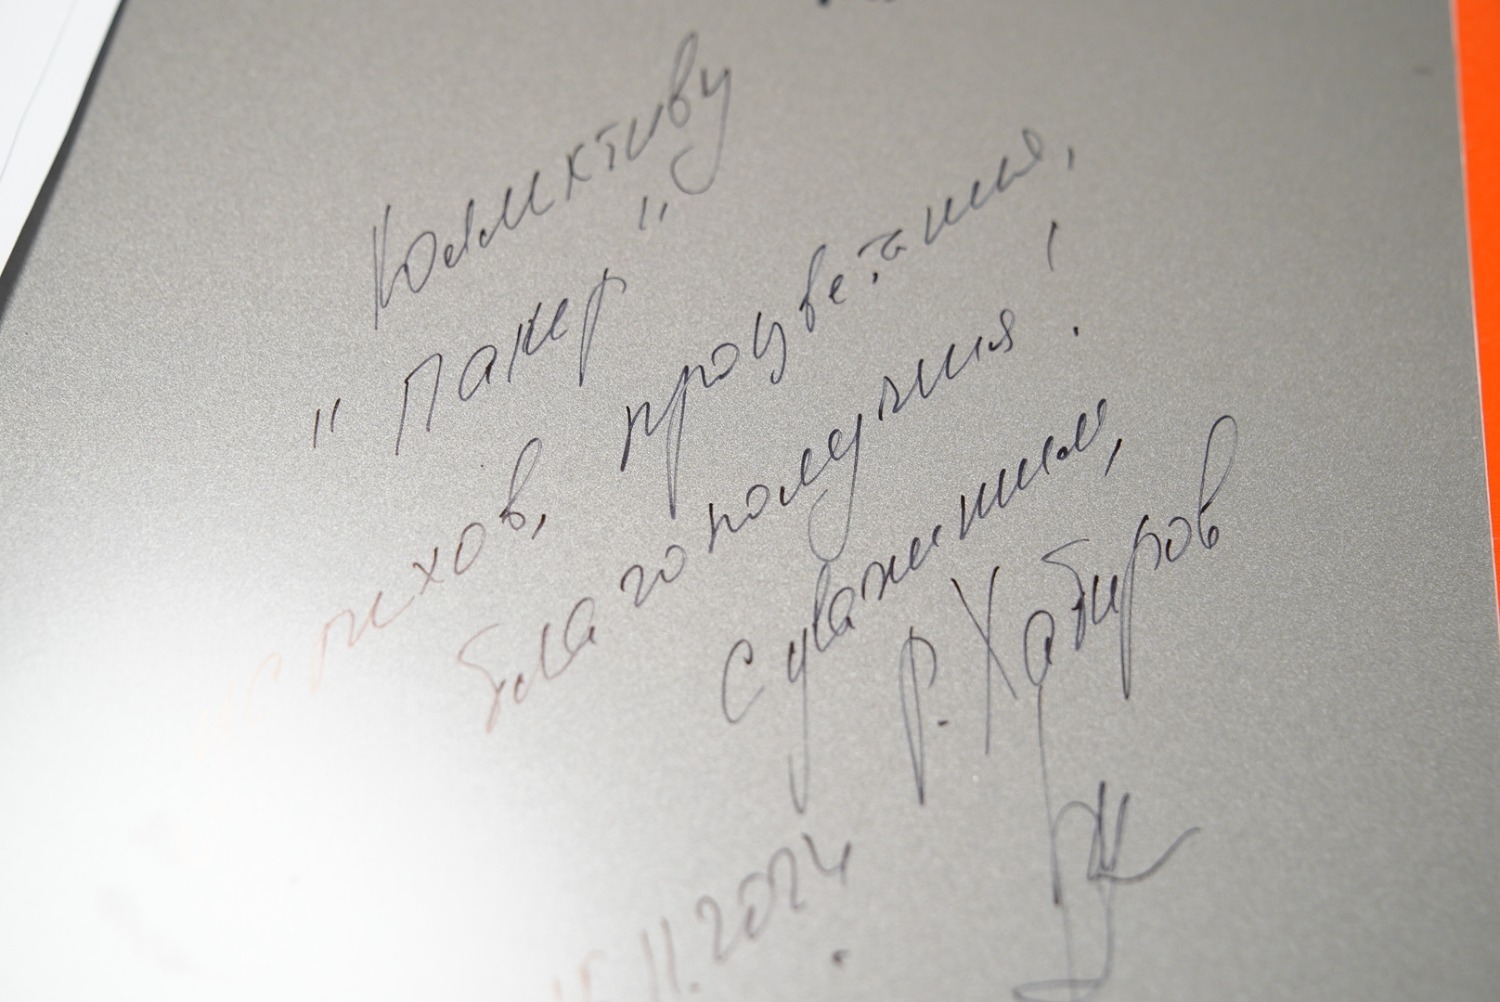 Коллективу
"Пакер"
успехов, процветания,
благополучия!
С уважением,
Р. Хабиров
11.2024